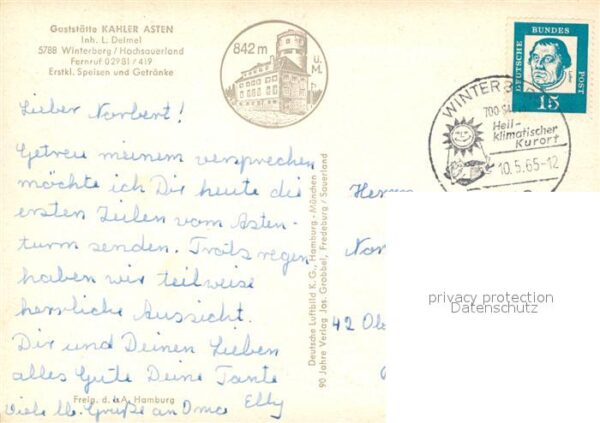 Gaststätte KAHLER ASTEN
Inh. L. Deimel
5788 Winterberg / Hochsauerland
Fernruf 02981 / 419
Erstkl. Speisen und Getränke
842 m
ü. M.
DEUTSCHE BUNDES POST
15
WINTERB
700
Heil-
klimatischer
Kurort
10.5.65-12
Lieber Norbert!
Getreu meinem versprechen
möchte ich Dir heute die
ersten Zeilen vom Asten-
turm senden. Trots regen
haben wir teilweise
herrliche Aussicht.
Dir und Deinen Lieben
alles Gute Deine Tante
Elly
viele lb. Grüße an Oma
Freig. d. LA Hamburg
Deutsche Luftbild K.G., Hamburg - München
90 Jahre Verlag Jos. Grobbel, Fredeburg / Sauerland
Herrn
Nor
42 Ob
privacy protection
Datenschutz